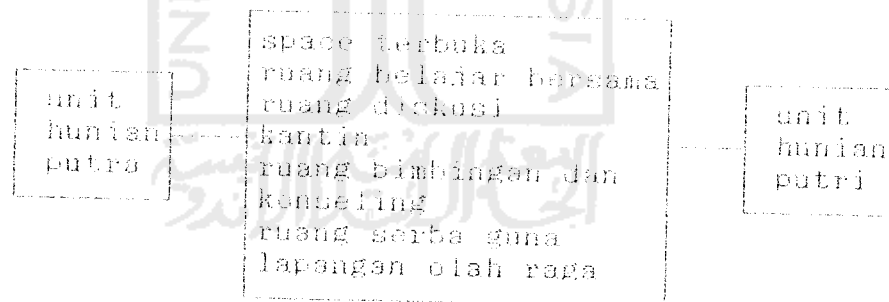 unit
hunian
putra
space terbuka
ruang belajar bersama
ruang diskusi
kantin
ruang bimbingan dan
konseling
ruang serba guna
lapangan olah raga
unit
hunian
putri